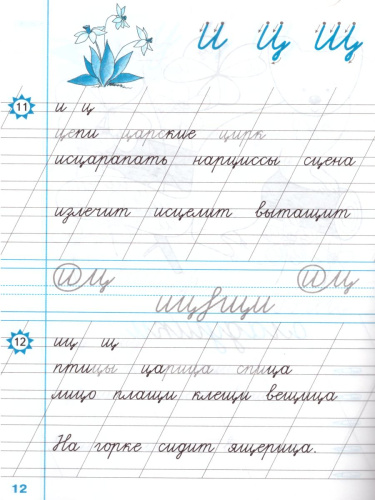 И Ц Щ
11
и ц
цепи царские цирк
исцарапать нарциссы сцена
излечит исцелит вытащит
иц иц
12
иц щ
птицы царица спица
лицо плащи клещи вещица
На горке сидит ящерица.
12